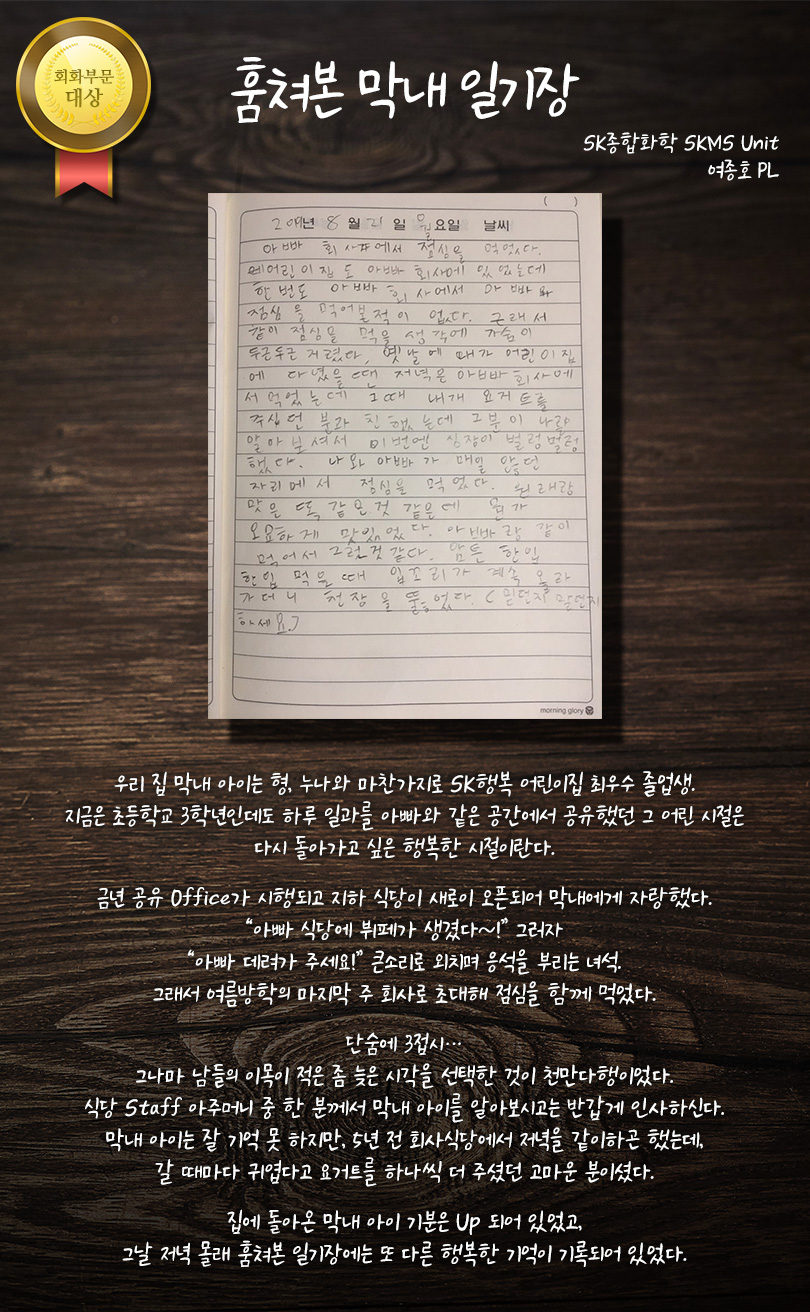 회화부문
대상
훔쳐본 막내 일기장
SK종합화학 SKMS Unit
여종호 PL
( )
년 8 월 21 일 월요일 날씨
아빠 회사에서 점심을 먹었다.
어린이집도 아빠 회사에 있었는데
한번도 아빠 회사에서 아빠와
점심을 먹어본적이 없다. 그래서
같이 점심을 먹을 생각에 가슴이
두근두근 거렸다. 옛날에 내가 어린이집
에 다녔을 땐 저녁은 아빠 회사에
서 먹었는데 그때 내개 요거트를
주십던 분과 친했는데 그분이 나를
알아보셔서 이번엔 심장이 벌렁벌렁
했다. 나와 아빠가 매일 앉던
자리에서 점심을 먹었다. 원래랑
맛은 똑같은것 같은데 뭔가
오묘하게 맛있었다. 아빠랑 같이
먹어서 그런것 같다. 암튼 한입
한입 먹을때 입꼬리가 계속 올라
가더니 천장을 뚫었다. ( 믿던지 말던지
하세요.)
morning glory
우리 집 막내 아이는 형, 누나와 마찬가지로 SK행복 어린이집 최우수 졸업생.
지금은 초등학교 3학년인데도 하루 일과를 아빠와 같은 공간에서 공유했던 그 어린 시절은
다시 돌아가고 싶은 행복한 시절이란다.
금년 공유 Office가 시행되고 지하 식당이 새로이 오픈되어 막내에게 자랑했다.
“아빠 식당에 뷔페가 생겼다~!” 그러자
“아빠 데려가 주세요!” 큰소리로 외치며 응석을 부리는 녀석.
그래서 여름방학의 마지막 주 회사로 초대해 점심을 함께 먹었다.
단숨에 3접시…
그나마 남들의 이목이 적은 좀 늦은 시각을 선택한 것이 천만다행이었다.
식당 Staff 아주머니 중 한 분께서 막내 아이를 알아보시고는 반갑게 인사하신다.
막내 아이는 잘 기억 못 하지만, 5년 전 회사식당에서 저녁을 같이하곤 했는데,
갈 때마다 귀엽다고 요거트를 하나씩 더 주셨던 고마운 분이셨다.
집에 돌아온 막내 아이 기분은 Up 되어 있었고,
그날 저녁 몰래 훔쳐본 일기장에는 또 다른 행복한 기억이 기록되어 있었다.